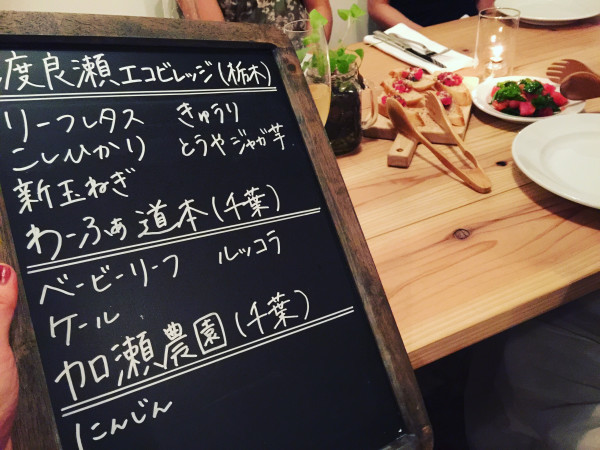 度良瀬エコビレッジ(栃木)
リーフレタス きゅうり
こしひかり とうやジャガ芋
新玉ねぎ
わーふぁ道本(千葉)
ベービーリーフ ルッコラ
ケール
加瀬農園(千葉)
にんじん